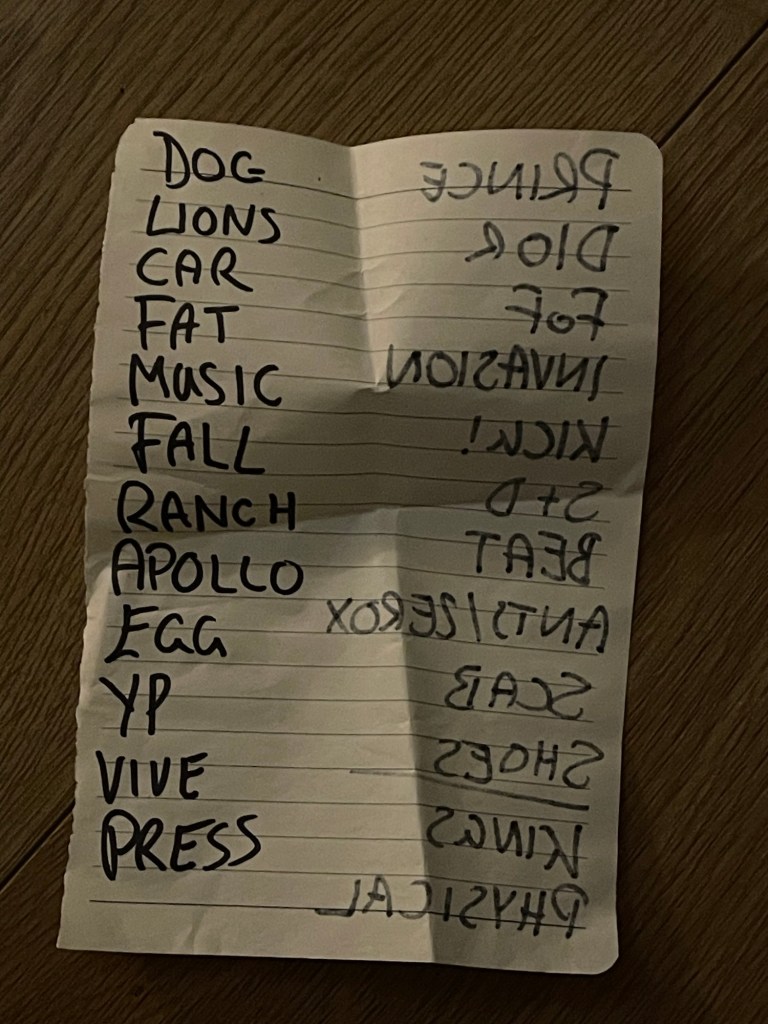 DOG
LIONS
CAR
FAT
MUSIC
FALL
RANCH
APOLLO
EGG
YP
VIVE
PRESS
PRINCE
DIOR
FOF
INVASION
KICK!
S+D
BEAT
ANTS/ZEROX
SCAB
SHOES
KINGS
PHYSICAL